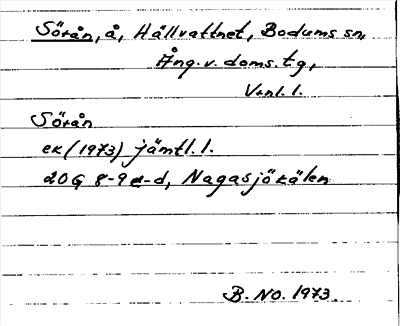 Sörån, å, Hällvattnet, Bodums sn,
Ång.v. doms. tg,
Vrnl. l.
Sörån
ek (1973) jämtl. l.
20G 8-9 c-d, Nagasjökälen
B. No. 1973.